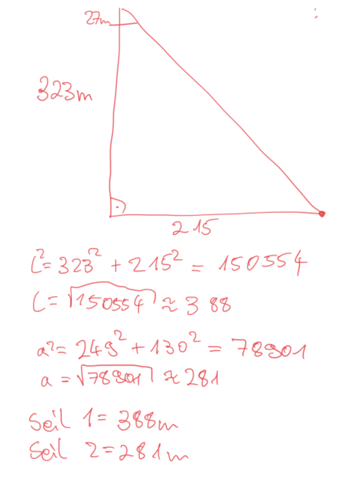 27m
323m
215
c² = 323² + 215² = 150554
c = √150554 ≈ 388
a² = 249² + 130² = 78901
a = √78901 ≈ 281
Seil 1 = 388m
Seil 2 = 281m